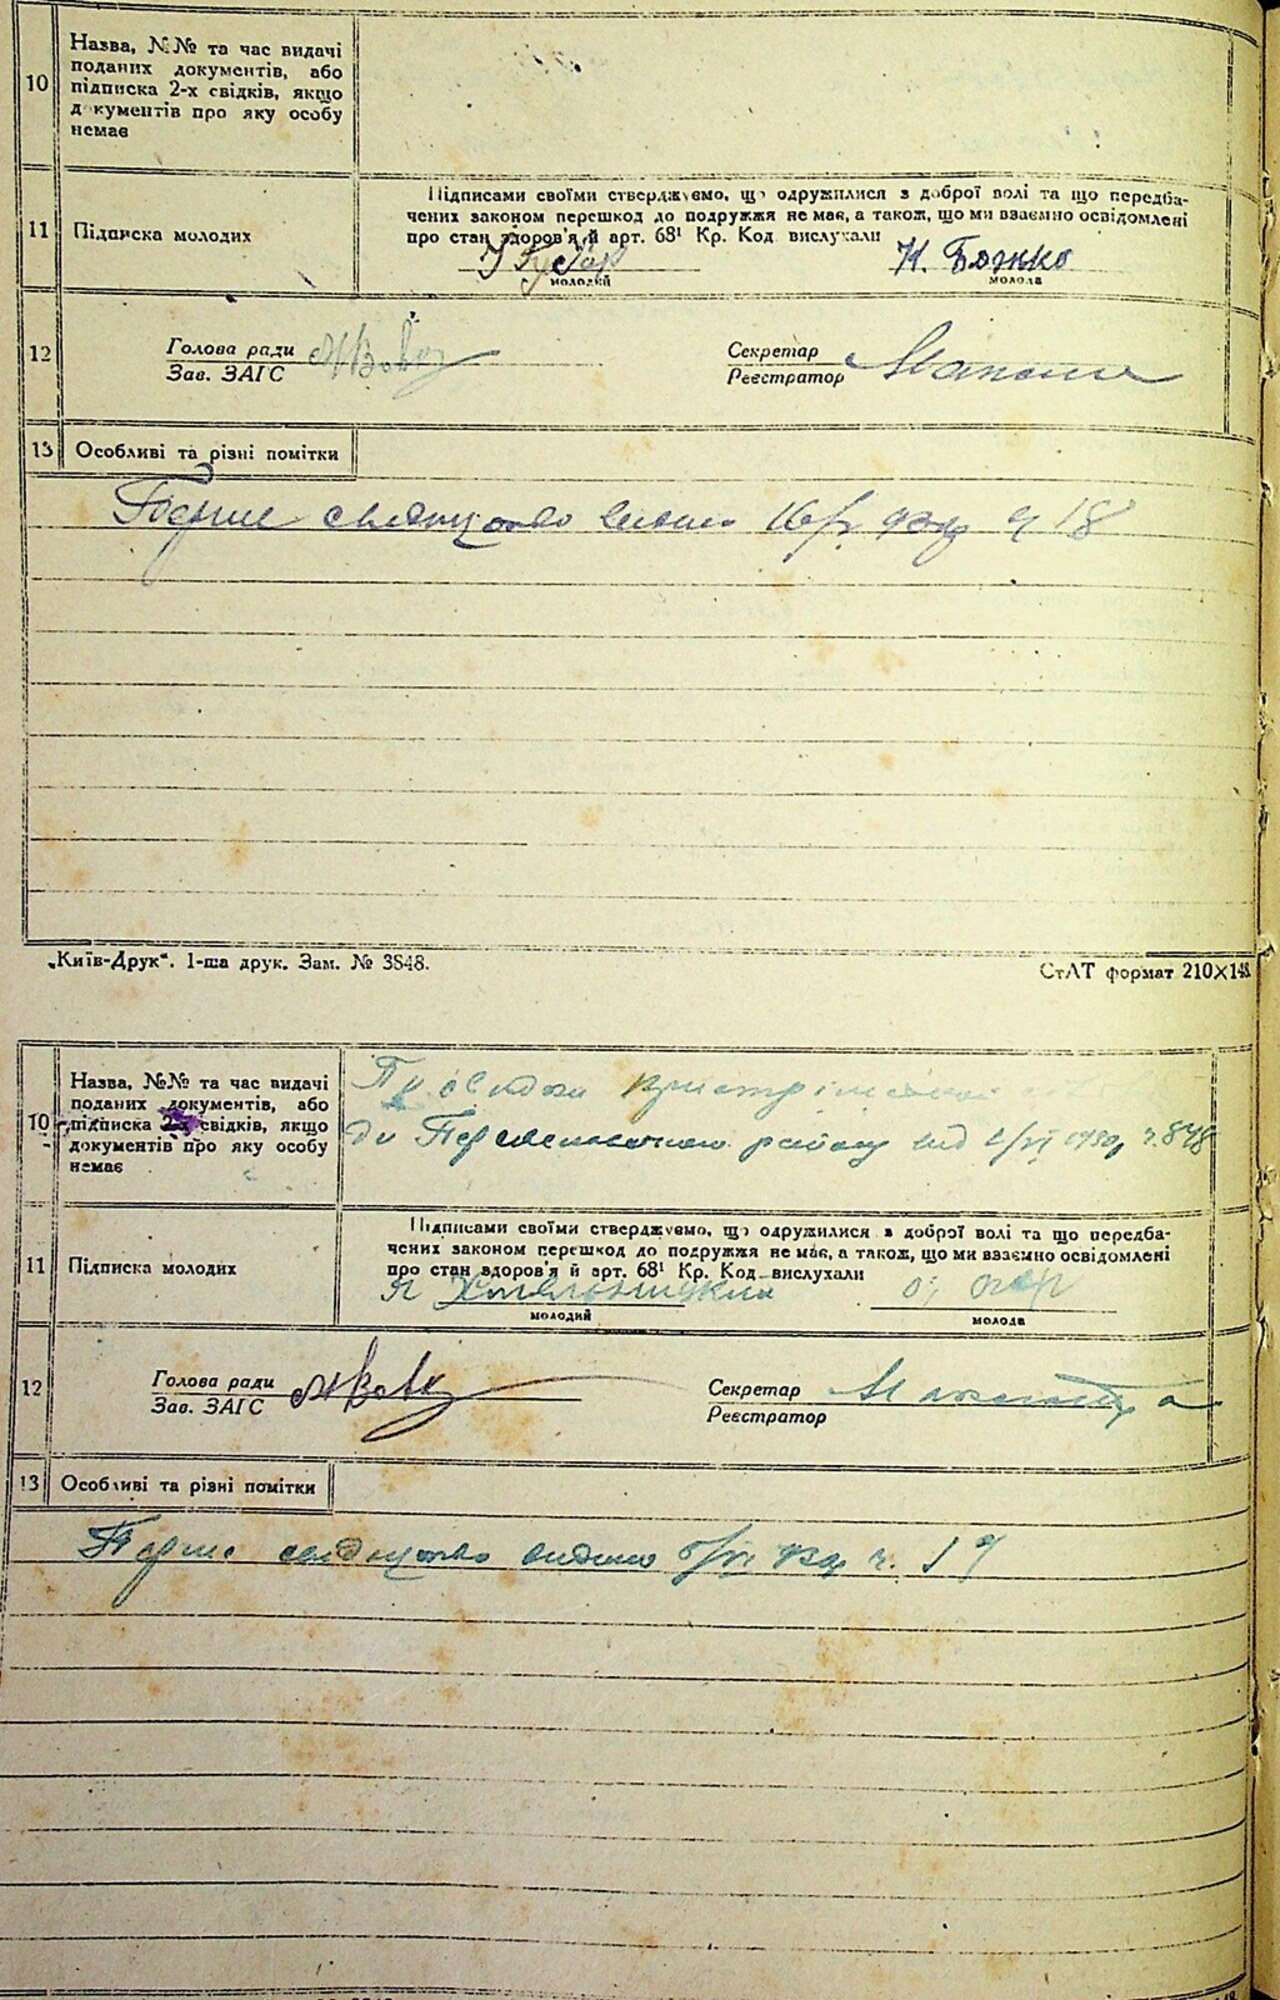 10
Назва, №№ та час видачі
поданих документів, або
підписка 2-х свідків, якщо
документів про яку особу
немає
11
Підписка молодих
Підписами своїми стверджуємо, що одружилися з доброї волі та що передба-
чених законом перешкод до подружжя не має, а також, що ми взаємно освідомлені
про стан здоров'я й арт. 68¹ Кр. Код вислухали
К. Божко
молодий
молода
12
Голова ради
Зав. ЗАГС
Секретар
Реєстратор
13
Особливі та різні помітки
Перше свідоцтво видано ч 18
„Київ-Друк“. 1-ша друк. Зам. № 3848.
СтАТ формат 210×148
10
Назва, №№ та час видачі
поданих документів, або
підписка 2-х свідків, якщо
документів про яку особу
немає
до району від 1930р ч. 848
11
Підписка молодих
Підписами своїми стверджуємо, що одружилися з доброї волі та що передба-
чених законом перешкод до подружжя не має, а також, що ми взаємно освідомлені
про стан здоров'я й арт. 68¹ Кр. Код вислухали
Я Хмельницкий
молодий
молода
12
Голова ради
Зав. ЗАГС
Секретар
Реєстратор
13
Особливі та різні помітки
Перше свідоцтво видано ч. 19